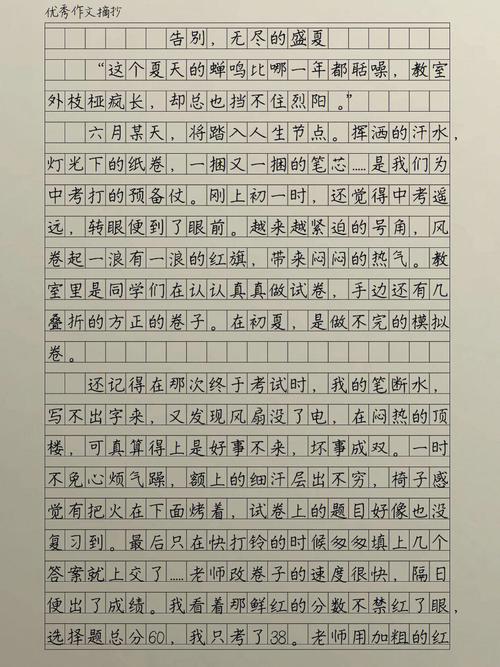 优秀作文摘抄
告别，无尽的盛夏
“这个夏天的蝉鸣比哪一年都聒噪，教室
外枝桠疯长，却总也挡不住烈阳。”
六月某天，将踏入人生节点。挥洒的汗水，
灯光下的纸卷，一捆又一捆的笔芯……是我们为
中考打的预备仗。刚上初一时，还觉得中考遥
远，转眼便到了眼前。越来越紧迫的号角，风
卷起一浪有一浪的红旗，带来闷闷的热气。教
室里是同学们在认认真真做试卷，手边还有几
叠折的方正的卷子。在初夏，是做不完的模拟
卷。
还记得在那次终于考试时，我的笔断水，
写不出字来，又发现风扇没了电，在闷热的顶
楼，可真算得上是好事不来，坏事成双。一时
不免心烦气躁，额上的细汗层出不穷，椅子感
觉有把火在下面烤着，试卷上的题目好像也没
复习到。最后只在快打铃的时候匆匆填上几个
答案就上交了……老师改卷子的速度很快，隔日
便出了成绩。我看着那鲜红的分数不禁红了眼，
选择题总分60，我只考了38。老师用加粗的红